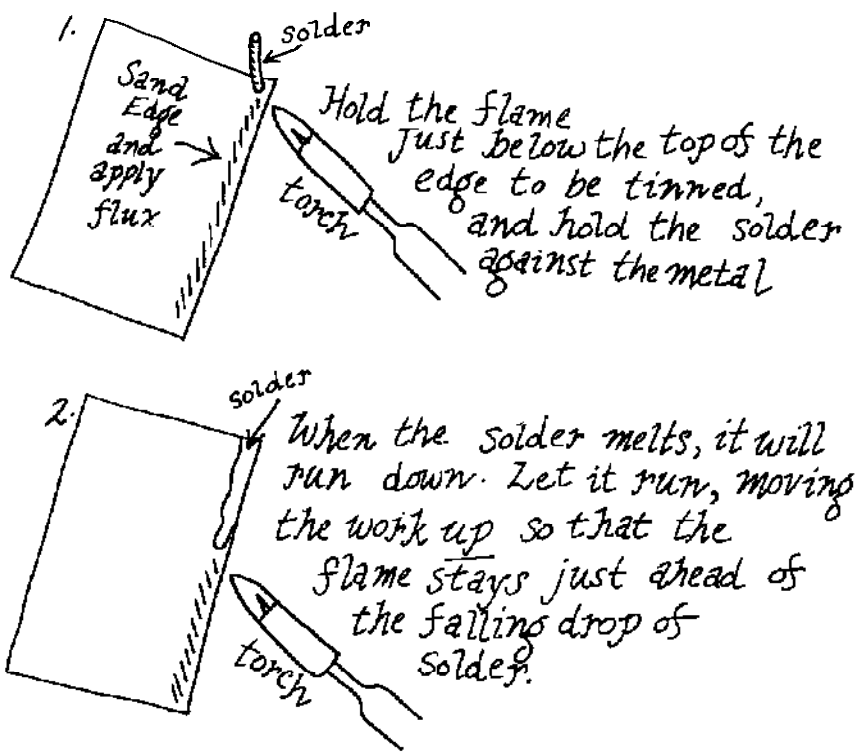 1.
solder
Sand
Edge
and
apply
flux
torch
Hold the flame
just below the top of the
edge to be tinned,
and hold the solder
against the metal
2.
solder
torch
When the solder melts, it will
run down. Let it run, moving
the work up so that the
flame stays just ahead of
the falling drop of
solder.